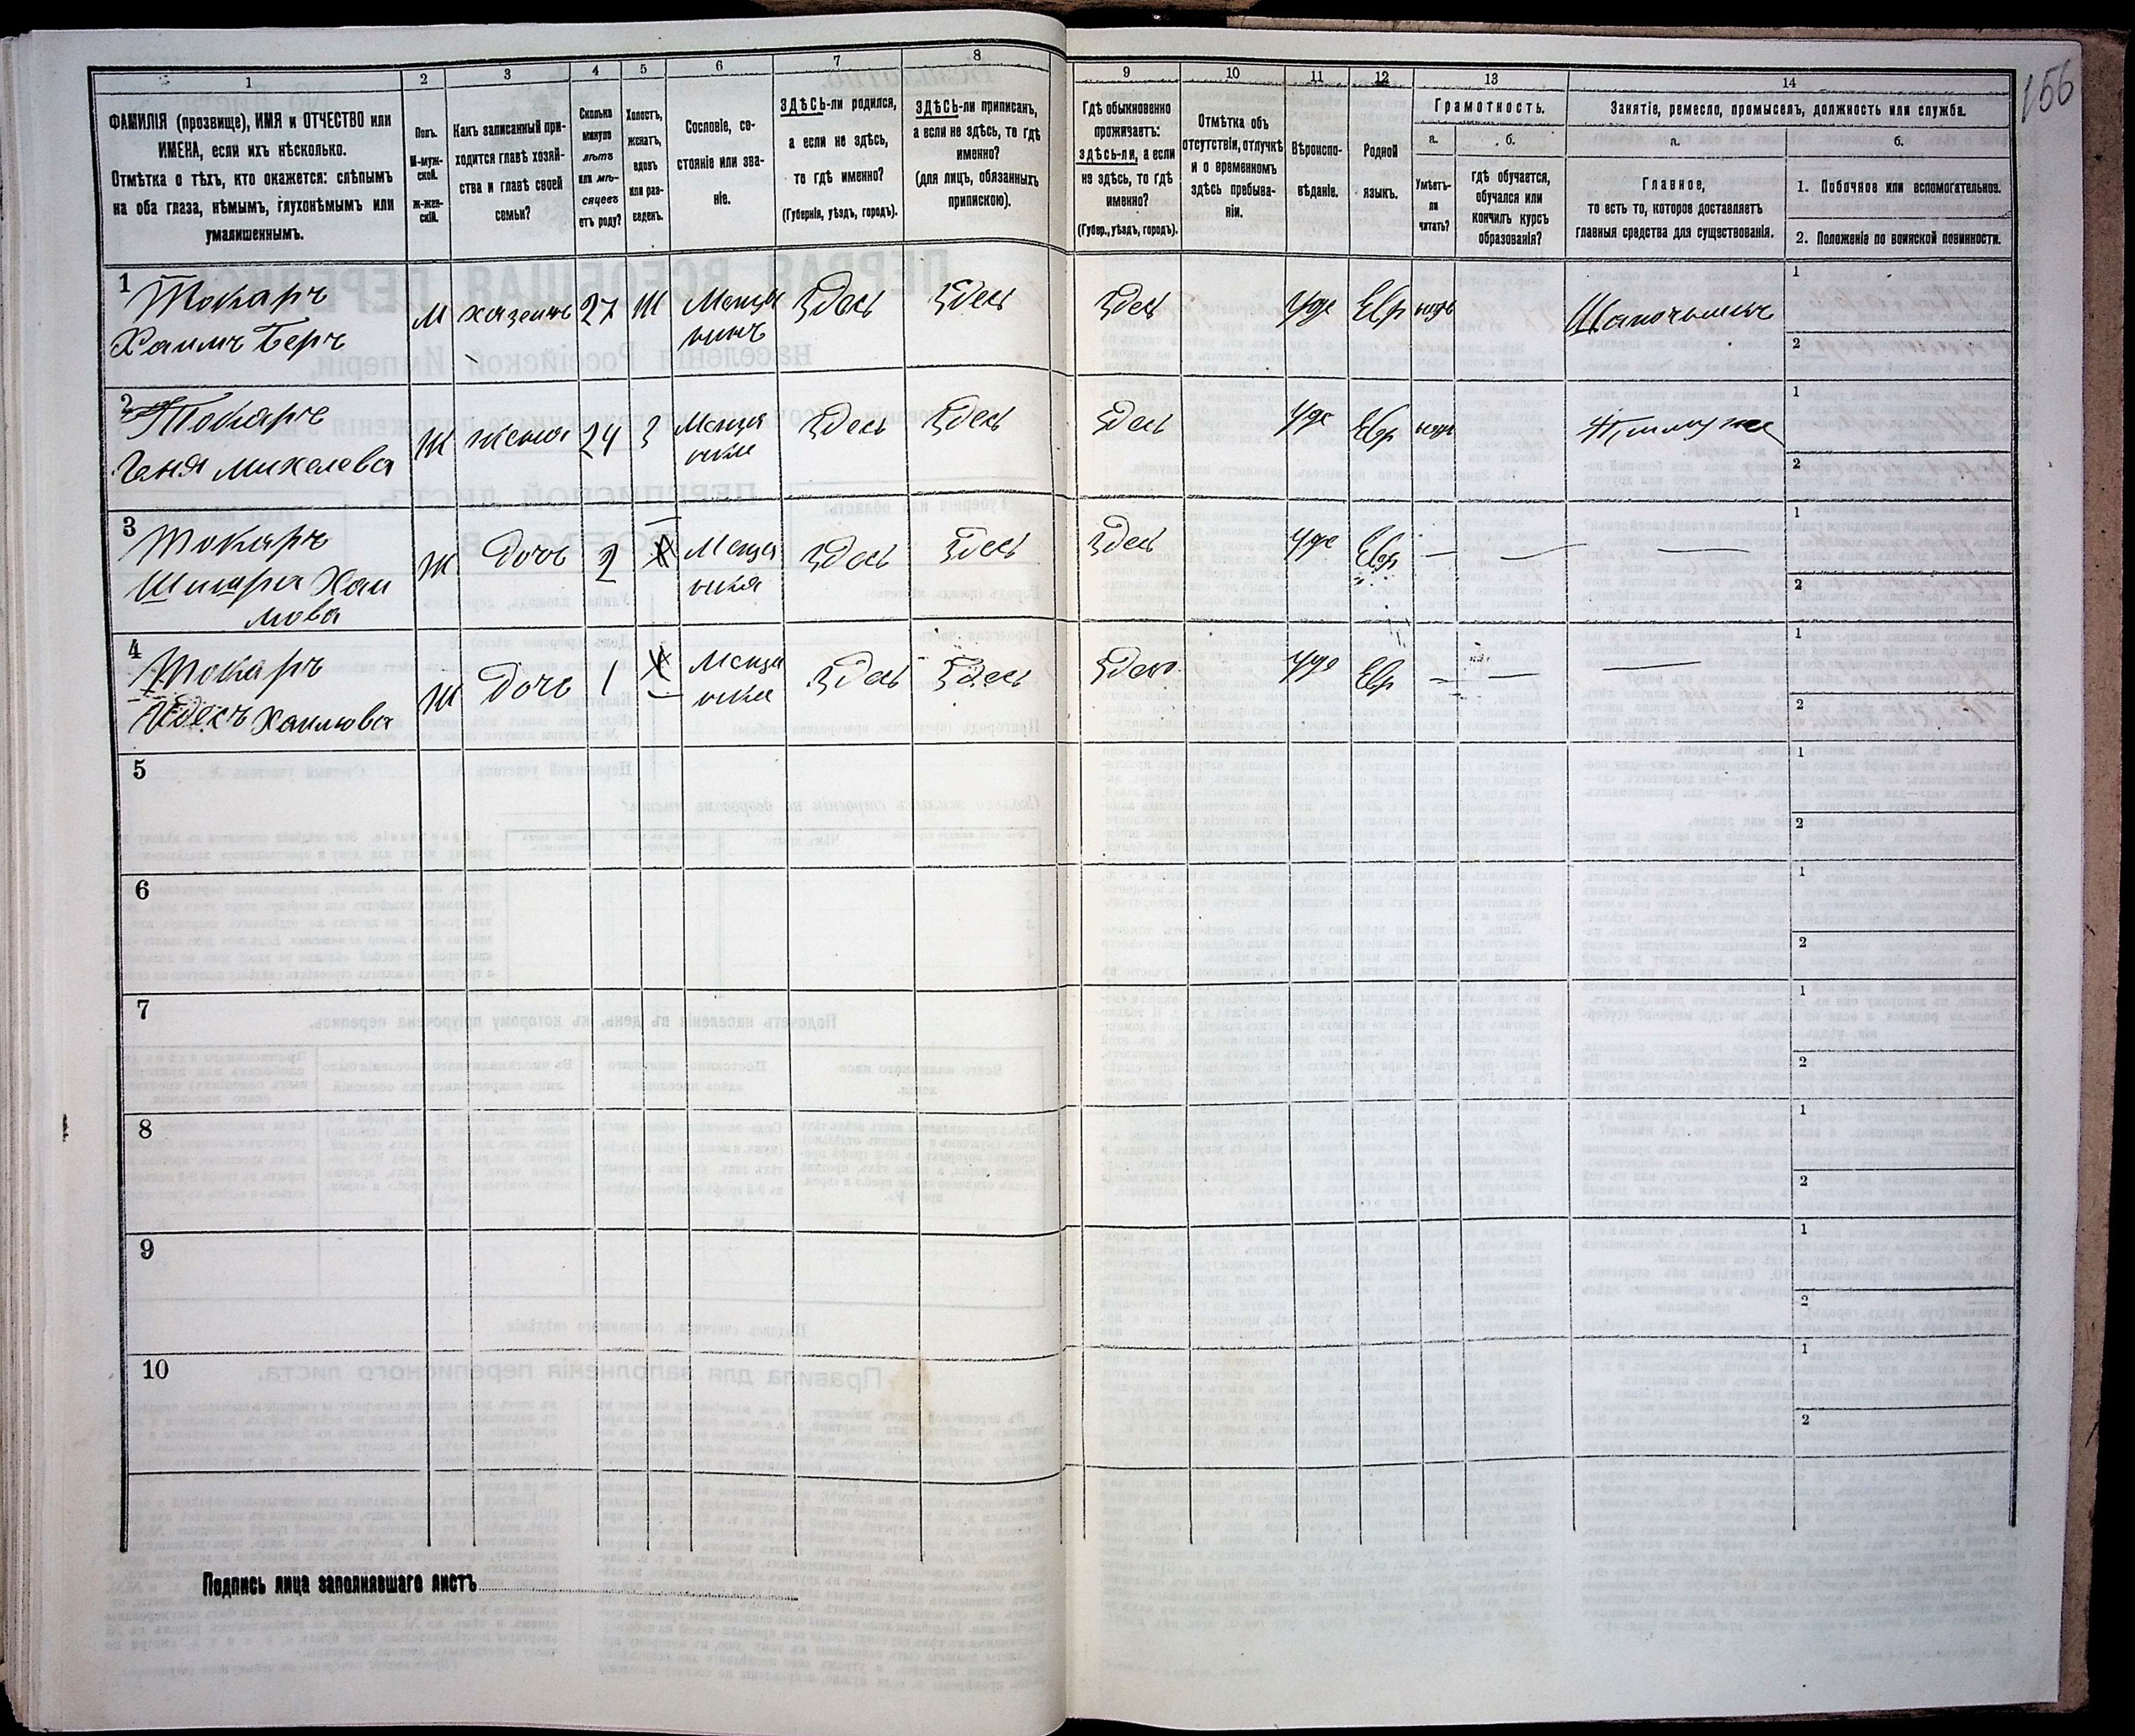 156
1 2 3 4 5 6 7 8 9 10 11 12 13 14
ФАМИЛІЯ (прозвище), ИМЯ и ОТЧЕСТВО или
ИМЕНА, если ихъ нѣсколько.
Отмѣтка о тѣхъ, кто окажется: слѣпымъ
на оба глаза, нѣмымъ, глухонѣмымъ или
умалишеннымъ.
Полъ.
М-муж-
ской.
ж-жен-
скій.
Какъ записанный при-
ходится главѣ хозяй-
ства и главѣ своей
семьи?
Сколько
минуло
лѣтъ
или мѣ-
сяцевъ
отъ роду?
Холостъ,
женатъ,
вдовъ
или раз-
веденъ.
Сословіе, со-
стояніе или зва-
ніе.
ЗДѢСЬ-ли родился,
а если не здѣсь,
то гдѣ именно?
(Губернія, уѣздъ, городъ).
ЗДѢСЬ-ли приписанъ,
а если не здѣсь, то гдѣ
именно?
(для лицъ, обязанныхъ
припискою).
Гдѣ обыкновенно
проживаетъ:
здѣсь-ли, а если
не здѣсь, то гдѣ
именно?
(Губер., уѣздъ, городъ).
Отмѣтка объ
отсутствіи, отлучкѣ
и о временномъ
здѣсь пребыва-
ніи.
Вѣроиспо-
вѣданіе.
Родной
языкъ.
Грамотность.
а.
Умѣетъ-
ли
читать?
б.
гдѣ обучается,
обучался или
кончилъ курсъ
образованія?
Занятіе, ремесло, промыселъ, должность или служба.
а.
Главное,
то есть то, которое доставляетъ
главныя средства для существованія.
б.
1. Побочное или вспомогательное.
2. Положеніе по воинской повинности.
1 Токаръ М хазеинъ 27 Ж Мещи Здесь Здесь Здесь Іуде Евр 1
Хаимъ Беръ нинъ 2
2 Токаръ Ж жена 24 З Меща Здесь Здесь Здесь Іуде Евр При муже 1
Геня Михелева нка 2
3 Токаръ Ж Дочь 2 Меща Здесь Здесь Здесь Іуде Евр — — — 1
Хаи нка 2
мова
4 Токаръ Ж Дочь 1 Меща Здесь Здесь Здесь Іуде Евр — — — 1
Хаимова нка 2
5 1
2
6 1
2
7 1
2
8 1
2
9 1
2
10 1
2
Подпись лица заполнявшаго листъ